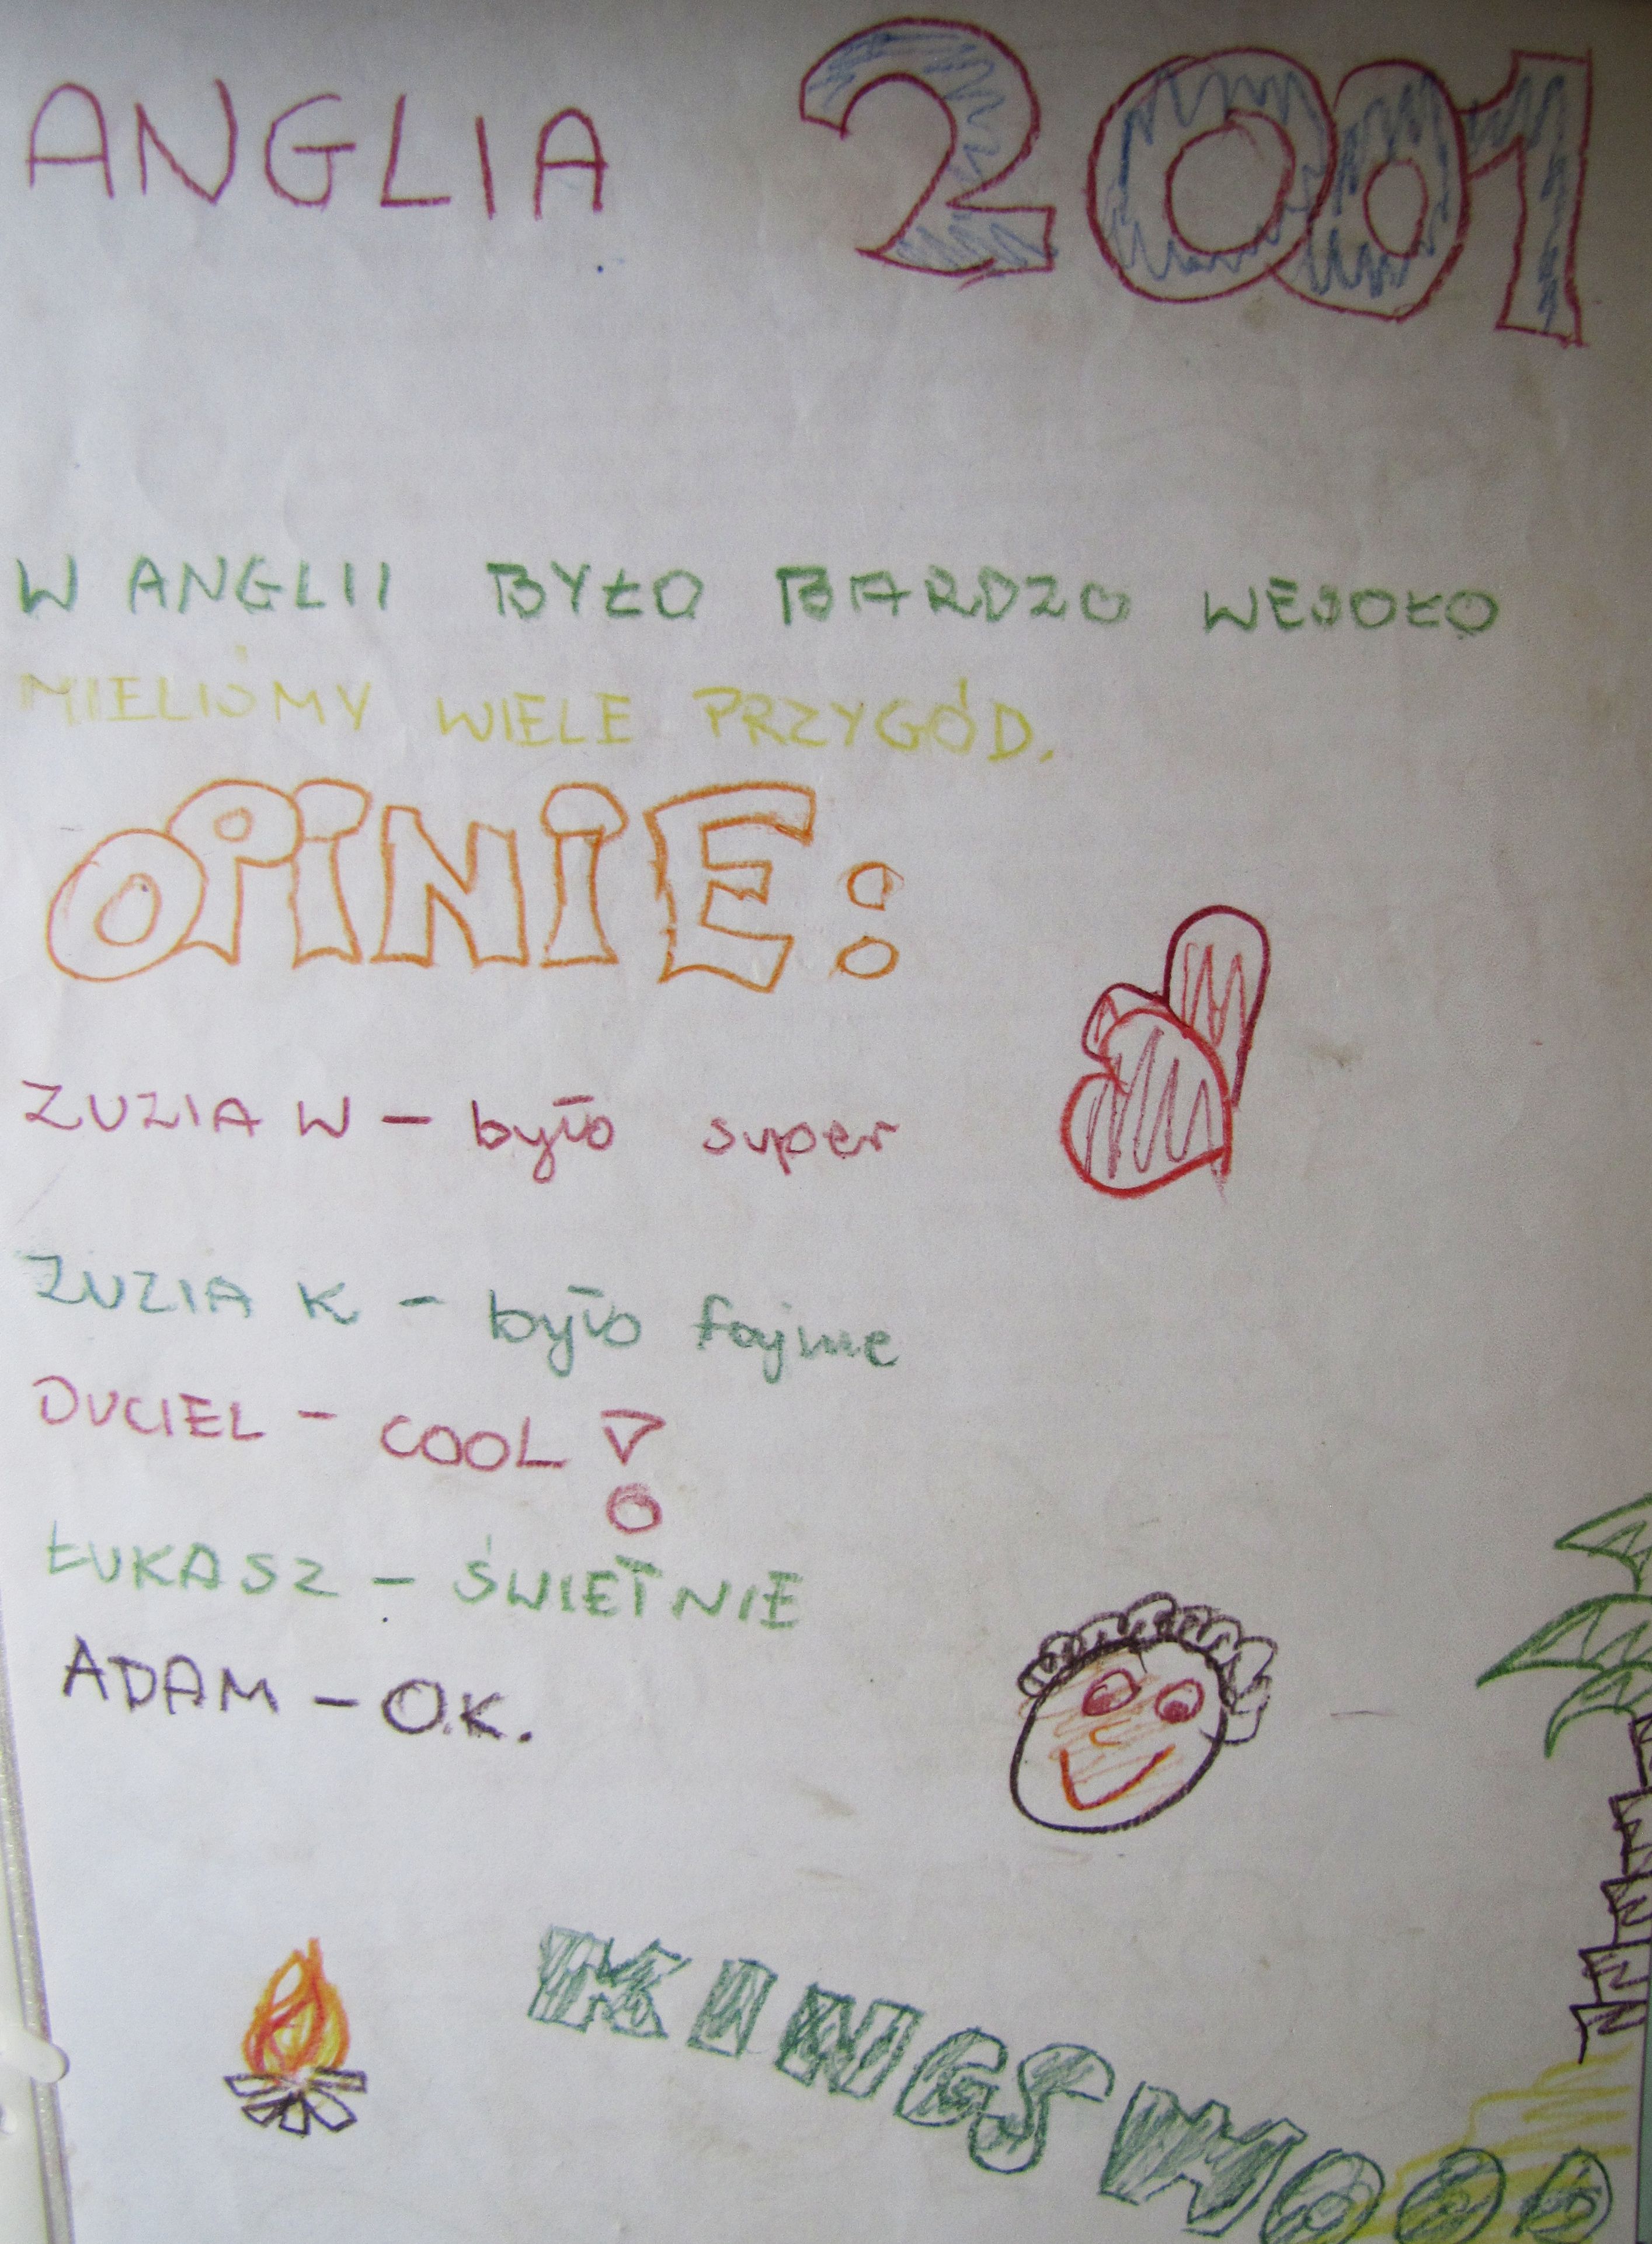 ANGLIA 2001
W ANGLII BYŁO BARDZO WESOŁO
MIELIŚMY WIELE PRZYGÓD.
OPINIE:
ZUZIA W - było super
ZUZIA K - było fajnie
DUCIEL - COOL !
ŁUKASZ - ŚWIETNIE
ADAM - O.K.
KINGSWOOD